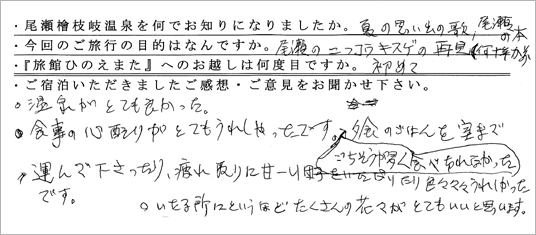 ・尾瀬檜枝岐温泉を何でお知りになりましたか。夏の思い出の歌、尾瀬の本
・今回のご旅行の目的はなんですか。尾瀬のニッコウキスゲの再見(何十年かぶ
・『旅館ひのえまた』へのお越しは何度目ですか。初めて
・ご宿泊いただきましたご感想・ご意見をお聞かせ下さい。
○温泉がとても良かった。
●食事の心配りがとてもうれしかったです。夕食のごはんを室まで
ごちそうが多く食べきれなかった
運んで下さったり、疲れ取りに甘ーい たり色々々うれしかった
です。
○いたる所にというほどたくさんの花々がとてもいいと思います。